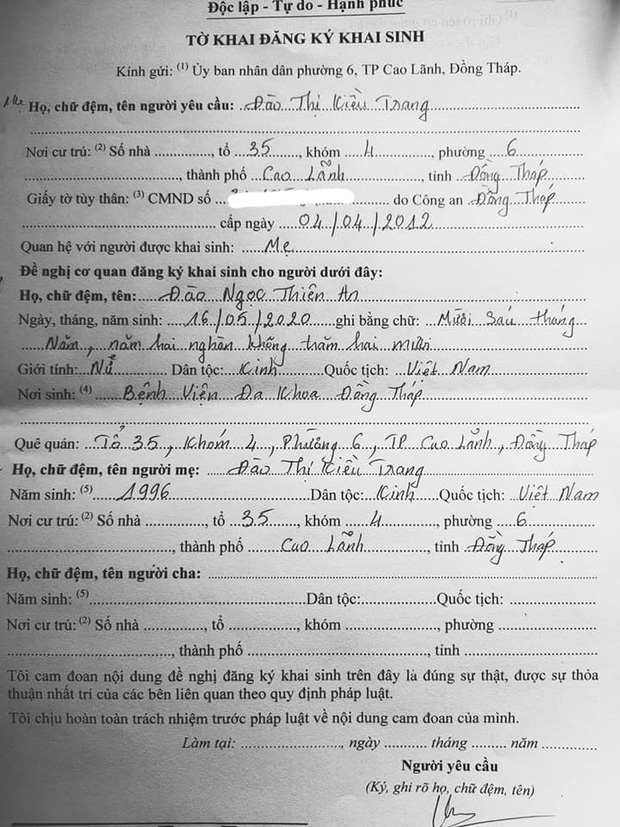 Độc lập - Tự do - Hạnh phúc
TỜ KHAI ĐĂNG KÝ KHAI SINH
Kính gửi: (1) Ủy ban nhân dân phường 6, TP Cao Lãnh, Đồng Tháp.
Họ, chữ đệm, tên người yêu cầu: Đào Thị Kiều Trang
Nơi cư trú: (2) Số nhà ............, tổ 35, khóm 4, phường 6
............, thành phố Cao Lãnh, tỉnh Đồng Tháp
Giấy tờ tùy thân: (3) CMND số ............ do Công an Đồng Tháp
............ cấp ngày 04/04/2012
Quan hệ với người được khai sinh: Mẹ
Đề nghị cơ quan đăng ký khai sinh cho người dưới đây:
Họ, chữ đệm, tên: Đào Ngọc Thiên An
Ngày, tháng, năm sinh: 16/05/2020 ghi bằng chữ: Mười Sáu tháng
Năm, năm hai nghìn không trăm hai mươi
Giới tính: Nữ Dân tộc: Kinh Quốc tịch: Việt Nam
Nơi sinh: (4) Bệnh Viện Đa Khoa Đồng Tháp
Quê quán: Tổ 35, Khóm 4, Phường 6, TP Cao Lãnh, Đồng Tháp
Họ, chữ đệm, tên người mẹ: Đào Thị Kiều Trang
Năm sinh: (5) 1996 Dân tộc: Kinh Quốc tịch: Việt Nam
Nơi cư trú: (2) Số nhà ............, tổ 35, khóm 4, phường 6
............, thành phố Cao Lãnh, tỉnh Đồng Tháp
Họ, chữ đệm, tên người cha: ............
Năm sinh: (5) ............ Dân tộc: ............ Quốc tịch: ............
Nơi cư trú: (2) Số nhà ............, tổ ............, khóm ............, phường ............
............, thành phố ............, tỉnh ............
Tôi cam đoan nội dung đề nghị đăng ký khai sinh trên đây là đúng sự thật, được sự thỏa
thuận nhất trí của các bên liên quan theo quy định pháp luật.
Tôi chịu hoàn toàn trách nhiệm trước pháp luật về nội dung cam đoan của mình.
Làm tại: ............, ngày ............ tháng ............ năm ............
Người yêu cầu
(Ký, ghi rõ họ, chữ đệm, tên)